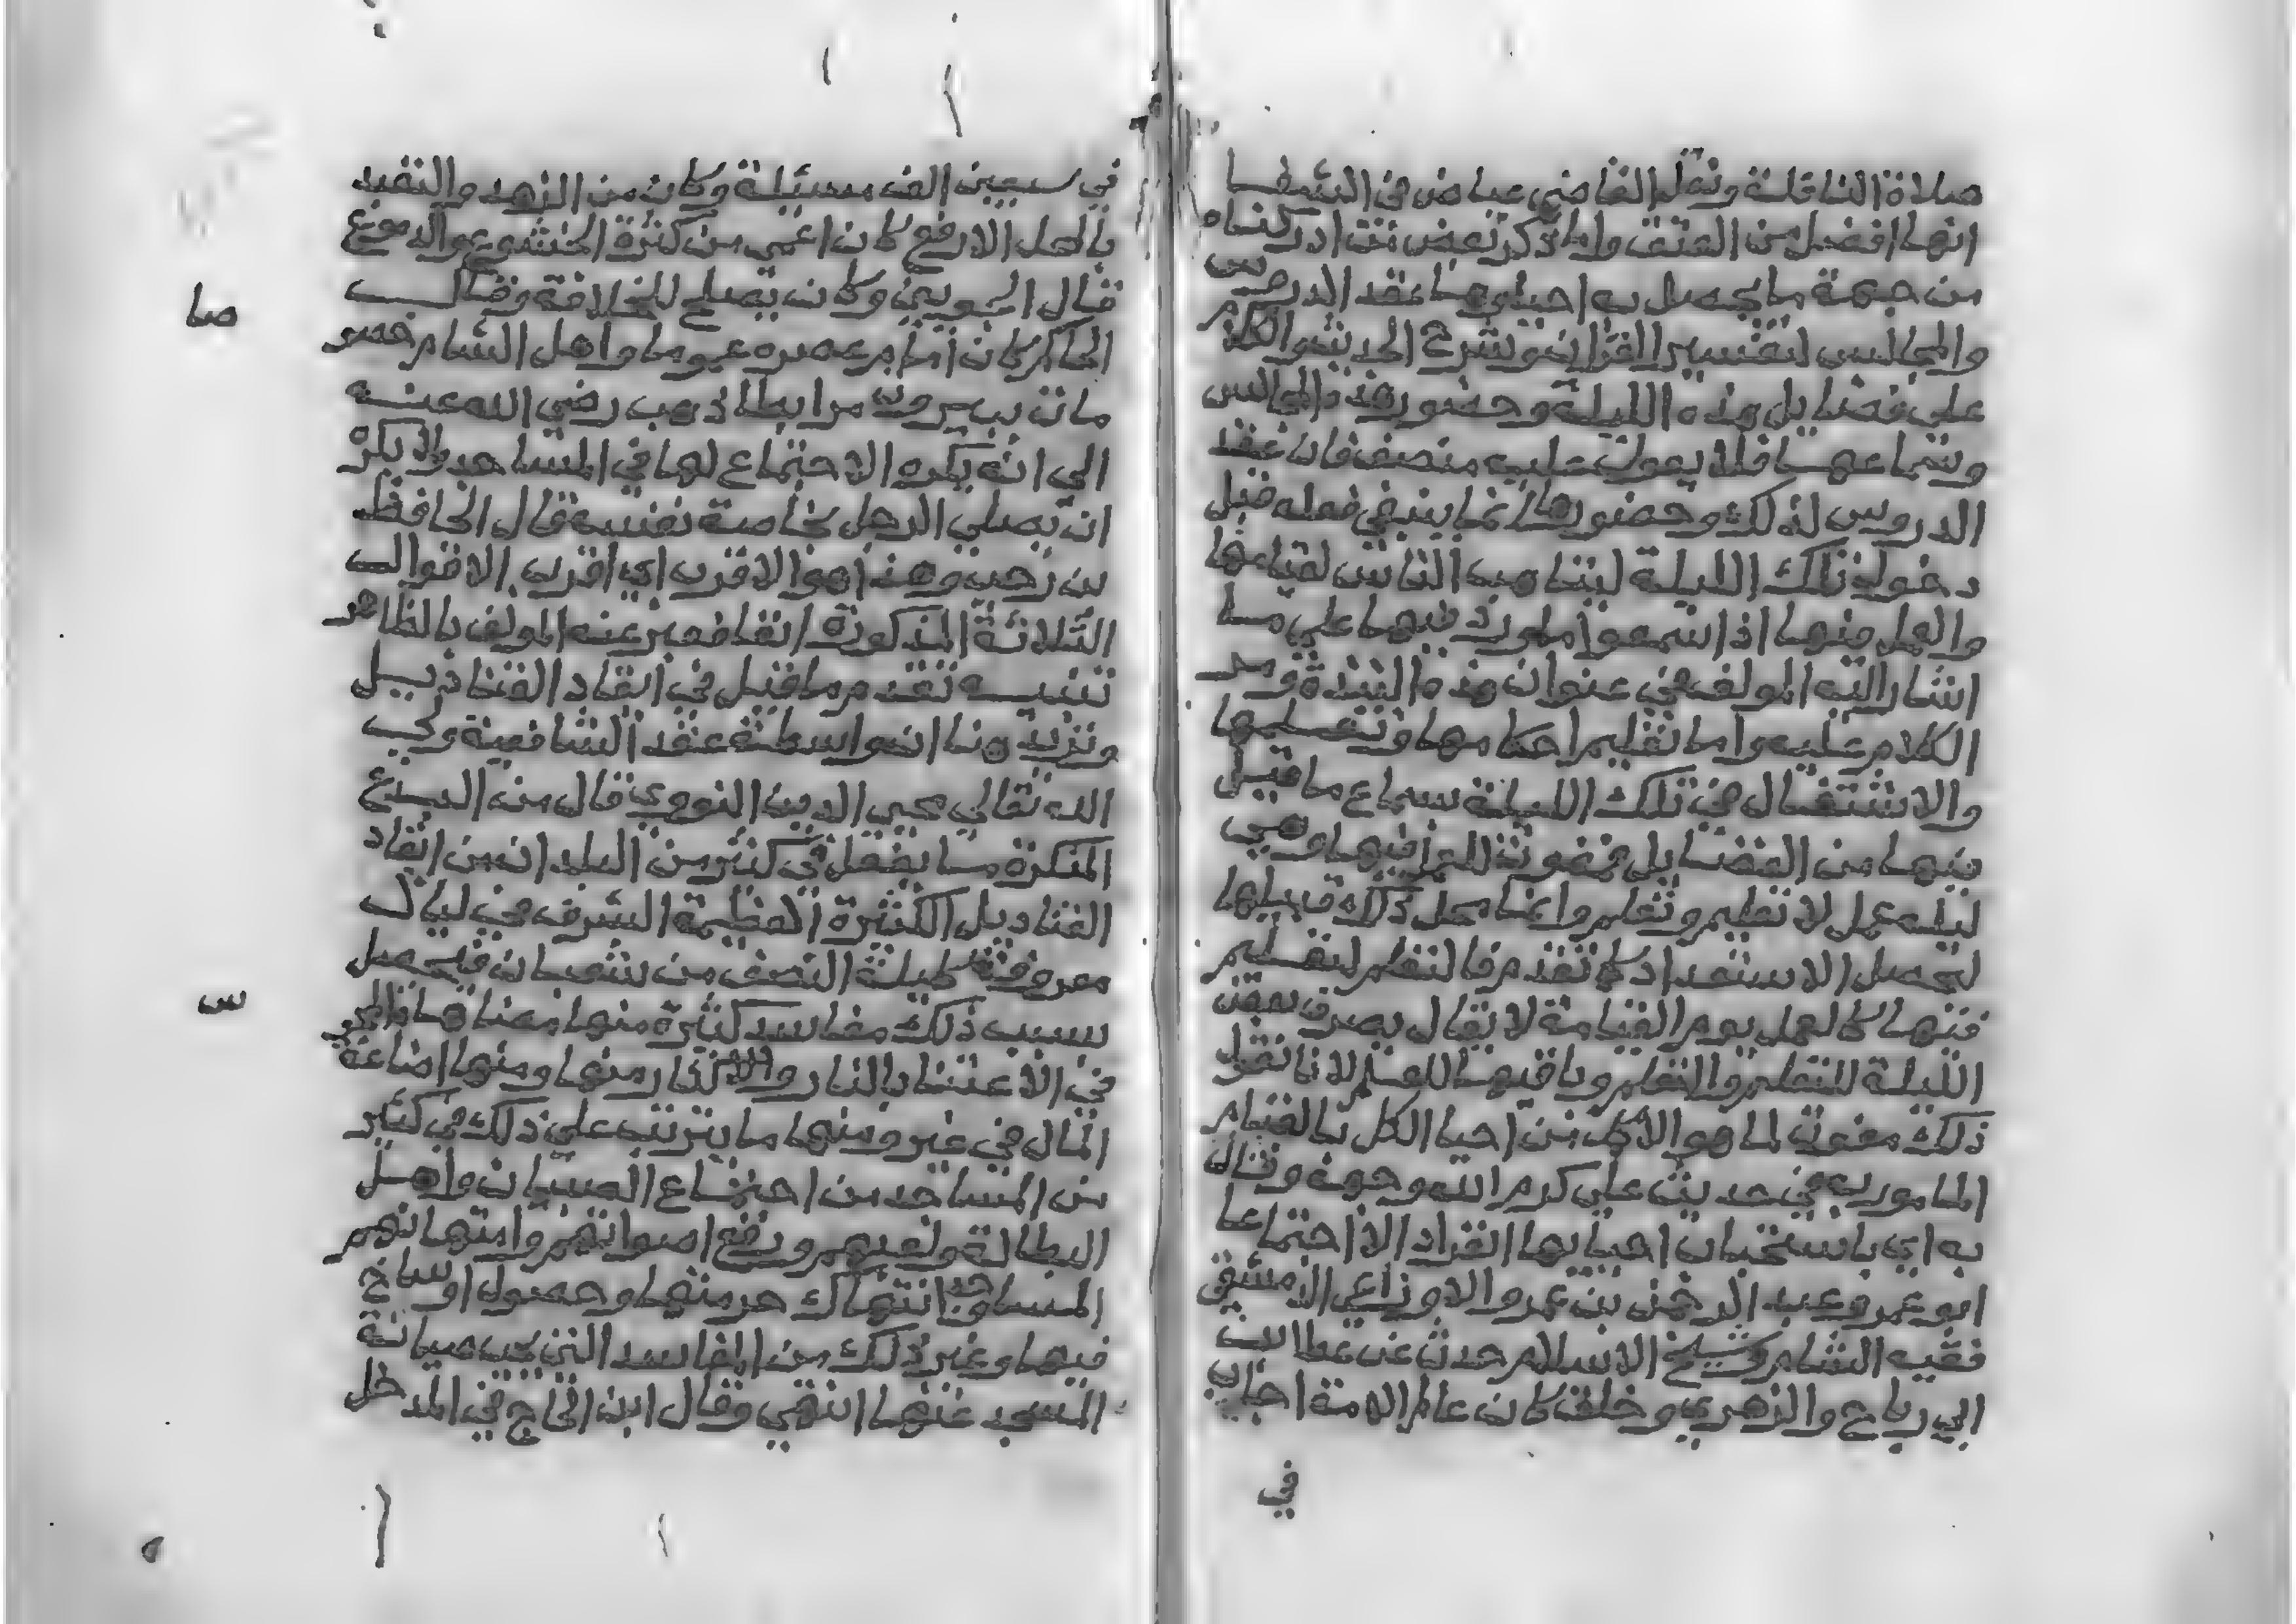 صلاة النافلة ونقل القاضي عياض في الشفا
انها افضل من العتق واما ذكر بعض من ادركناه
من جهة ما يحصل به احياوها عقد الدروس
والمجالس لتفسير القران وشرح الحديث والكلام
علي فضايل هذه الليلة وحضور هذه المجالس
وسماعها فلا يعول عليه منصف فان عقد
الدروس لذلك وحضورها انما ينبغي فعله قبل
دخول تلك الليلة ليتاهب الناس لقيامها
والعمل فيها اذا سمعوا ما ورد فيها علي ما
اشار اليه المولف في عنوان هذه النبذة ومر
الكلام عليه واما تعليم احكامها وتعليمها
والاشتغال في تلك الليلة بسماع ما قيل
فيها من الفضايل فمفوت للعمل فيها وهي
ليله عمل لا تعليم وتعلم وانما محل ذلك قبيلها
ليحصل الاستعداد كما تقدم فالتعلم لتعليم
فيها كالعمل يوم القيامة لا يقال يصرف بعض
الليلة للتعليم والتعلم وباقيها للعمل لانا نقول
ذلك مفوت لما هو الاكمل من احيا الكل بالقيام
المامور به في حديث علي كرم الله وجهه وقال
به اي باستحباب احيايها انفراد الا اجتماعا
ابو عمرو عبد الرحمن بن عمرو الاوزاعي الدمشقي
فقيه الشام وشيخ الاسلام حدث عن عطا بن
ابي رباح والزهري وخلق كان عالم الامة اجاب
في
في سبعين الف مسيلة وكان من الزهد والتعبد
بالمحل الارفع كان اعمي من كثرة الخشوع والدموع
قال الجويني وكان يصلح للخلافة وقال
الحاكم كان امام عصره عموما واهل الشام خصو
صا
مات ببيروت مرابطا ذهب رضي الله عنه
الي انه يكره الاجتماع لها في المساجد ولا يكره
ان يصلي الرجل بخاصة نفسه قال الحافظ
بن رجب وهذا هو الاقرب اي اقرب الاقوال
الثلاثة المذكورة انفا فعبر عنه المولف بالظاهر
تنبيه تقدم ما قيل في ايقاد القناديل
ونزيد هنا ان واسطة عقد الشافعية ومحب
الله تعالي محيي الدين النووي قال من البدع
المنكرة ما يفعل في كثير من البلدان من ايقاد
القناديل الكثيرة العظيمة السرف في ليال
معروفة كليلة النصف من شعبان فيحصل
بسبب ذلك مفاسد كثيرة منها مضاهاة المجو
س
في الاعتنا بالنار والاكثار منها ومنها اضاعة
المال في غير ومنها ما يترتب علي ذلك في كثير
من المساجد من اجتماع الصبيان واهل
البطالة ولعبهم ورفع اصواتهم وامتهانهم
المساجد وانتهاك حرمتها وحصول اوساخ
فيها وغير ذلك من المفاسد التي يجب صيانة
المسجد عنها انتهي وقال ابن الحاج في المدخل